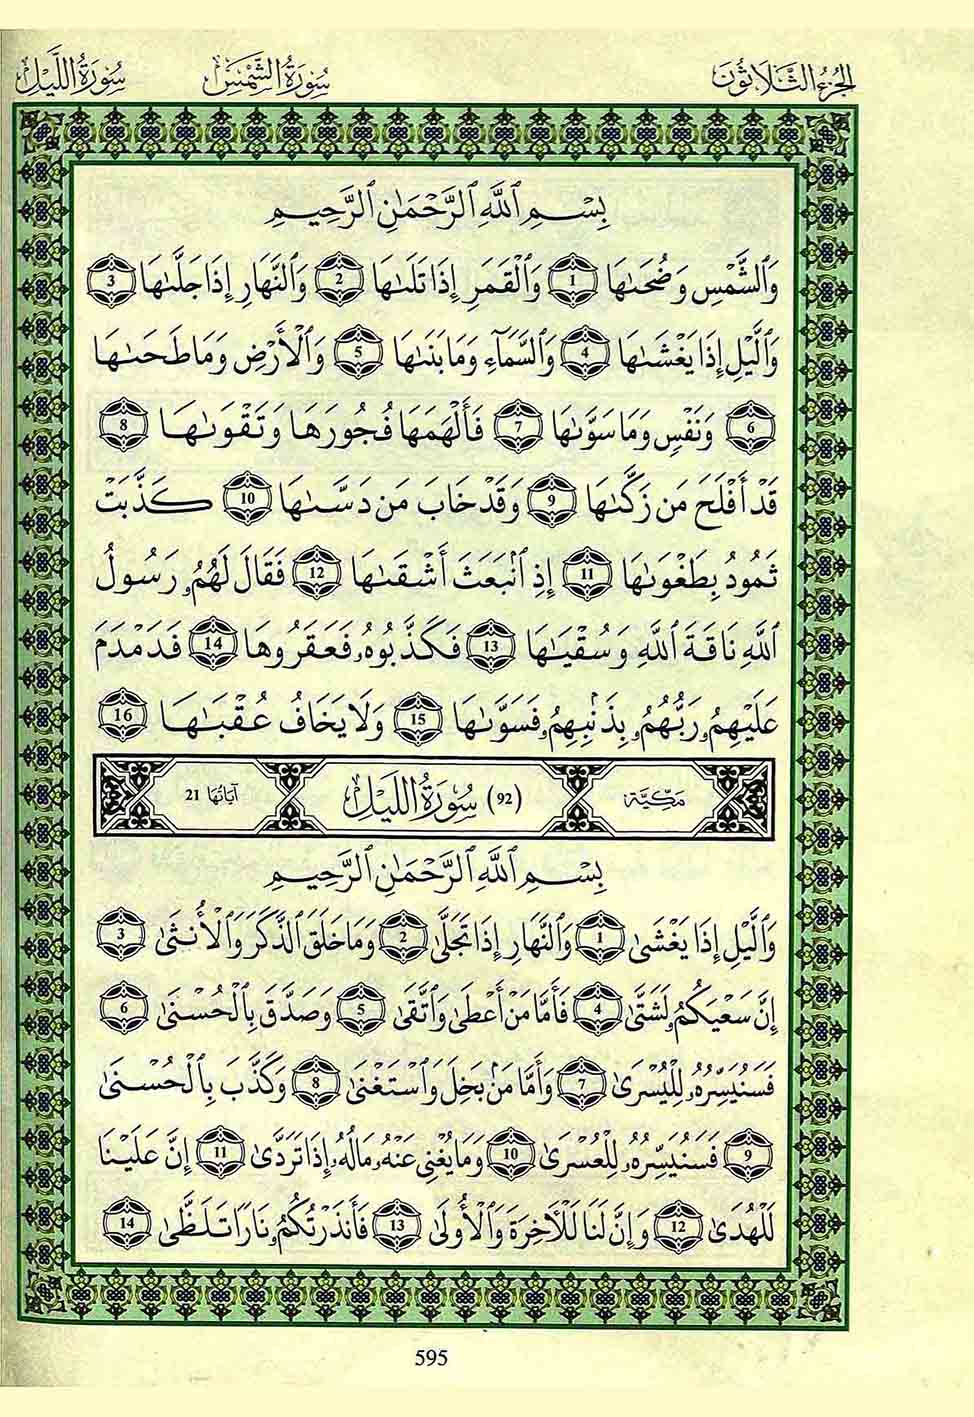 الجُزْءُ الثَّلَاثُونَ سُورَةُ الشَّمْسِ سُورَةُ اللَّيْلِ
بِسْمِ ٱللَّهِ ٱلرَّحْمَٰنِ ٱلرَّحِيمِ
وَٱلشَّمْسِ وَضُحَىٰهَا 1 وَٱلْقَمَرِ إِذَا تَلَىٰهَا 2 وَٱلنَّهَارِ إِذَا جَلَّىٰهَا 3
وَٱلَّيْلِ إِذَا يَغْشَىٰهَا 4 وَٱلسَّمَآءِ وَمَا بَنَىٰهَا 5 وَٱلْأَرْضِ وَمَا طَحَىٰهَا
6 وَنَفْسٍ وَمَا سَوَّىٰهَا 7 فَأَلْهَمَهَا فُجُورَهَا وَتَقْوَىٰهَا 8
قَدْ أَفْلَحَ مَن زَكَّىٰهَا 9 وَقَدْ خَابَ مَن دَسَّىٰهَا 10 كَذَّبَتْ
ثَمُودُ بِطَغْوَىٰهَا 11 إِذِ ٱنۢبَعَثَ أَشْقَىٰهَا 12 فَقَالَ لَهُمُۥ رَسُولُ
ٱللَّهِ نَاقَةَ ٱللَّهِ وَسُقْيَٰهَا 13 فَكَذَّبُوهُۥ فَعَقَرُوهَا 14 فَدَمْدَمَ
عَلَيْهِمُۥ رَبُّهُمُۥ بِذَنۢبِهِمُۥ فَسَوَّىٰهَا 15 وَلَا يَخَافُ عُقْبَٰهَا 16
مَكِّيَّة (92) سُورَةُ اللَّيْلِ آيَاتُهَا 21
بِسْمِ ٱللَّهِ ٱلرَّحْمَٰنِ ٱلرَّحِيمِ
وَٱلَّيْلِ إِذَا يَغْشَىٰ 1 وَٱلنَّهَارِ إِذَا تَجَلَّىٰ 2 وَمَا خَلَقَ ٱلذَّكَرَ وَٱلْأُنثَىٰ 3
إِنَّ سَعْيَكُمُۥ لَشَتَّىٰ 4 فَأَمَّا مَنْ أَعْطَىٰ وَٱتَّقَىٰ 5 وَصَدَّقَ بِٱلْحُسْنَىٰ 6
فَسَنُيَسِّرُهُۥ لِلْيُسْرَىٰ 7 وَأَمَّا مَنۢ بَخِلَ وَٱسْتَغْنَىٰ 8 وَكَذَّبَ بِٱلْحُسْنَىٰ
9 فَسَنُيَسِّرُهُۥ لِلْعُسْرَىٰ 10 وَمَا يُغْنِى عَنْهُۥ مَالُهُۥ إِذَا تَرَدَّىٰ 11 إِنَّ عَلَيْنَا
لَلْهُدَىٰ 12 وَإِنَّ لَنَا لَلْأَخِرَةَ وَٱلْأُولَىٰ 13 فَأَنذَرْتُكُمُۥ نَارًا تَلَظَّىٰ 14
595